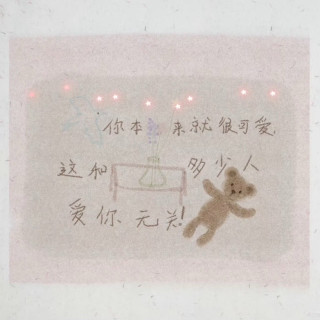 你本来就很可爱,
这和多少人
爱你无关!